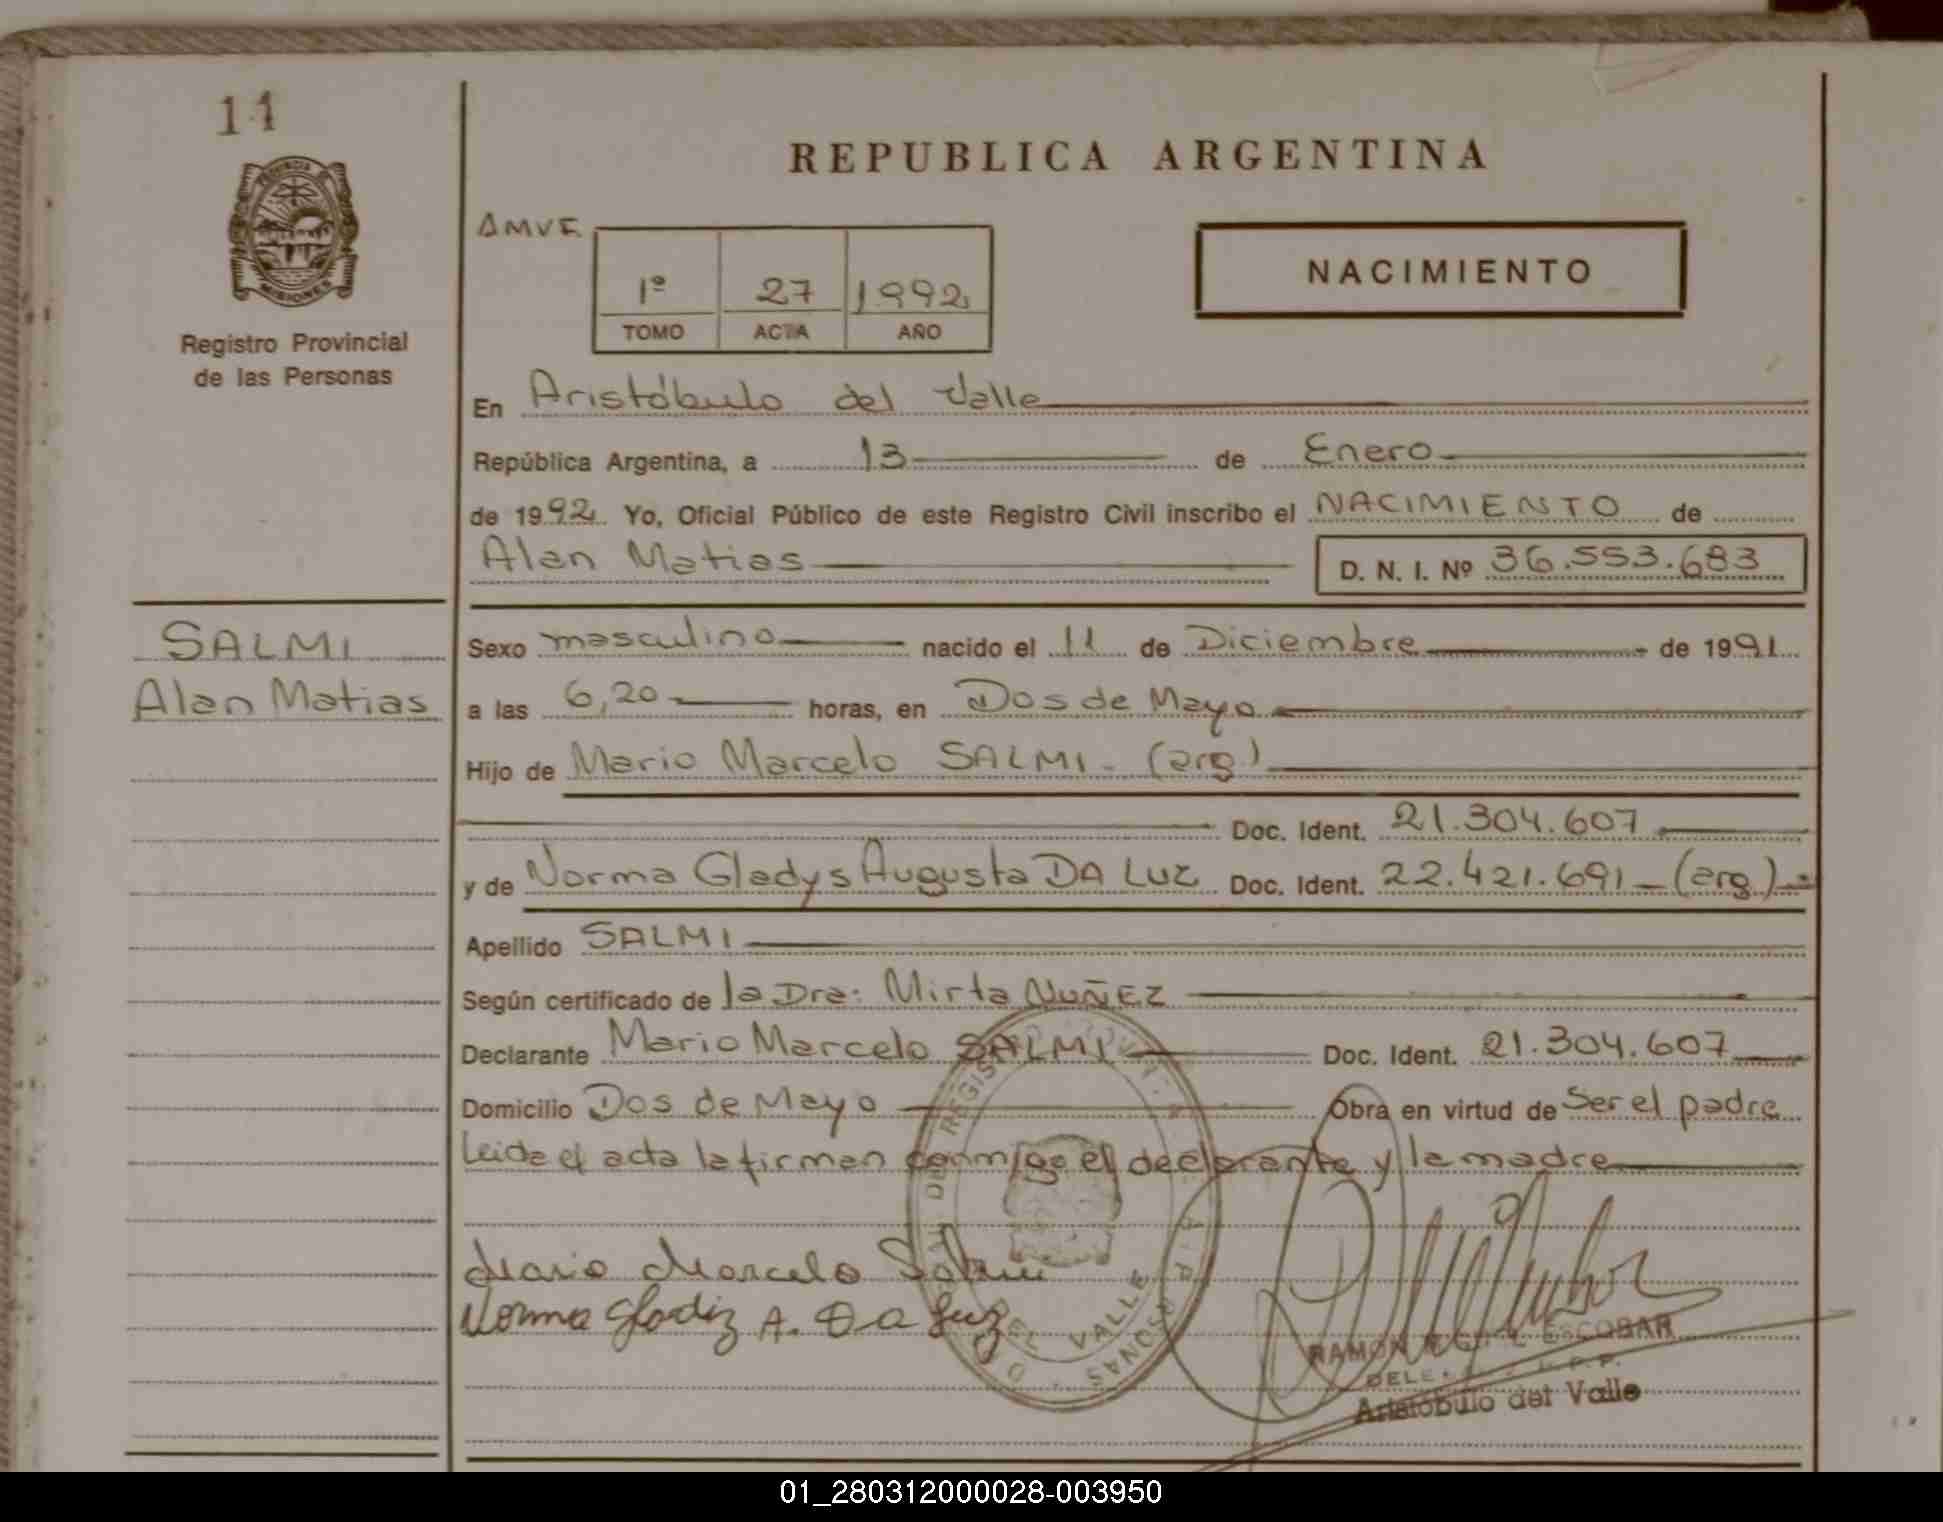 11
PROVINCIA
MISIONES
Registro Provincial
de las Personas
SALMI
Alan Matias
REPUBLICA ARGENTINA
AMVE
1º 27 1992
TOMO ACTA AÑO
NACIMIENTO
En Aristóbulo del Valle
República Argentina, a 13 de Enero
de 1992 Yo, Oficial Público de este Registro Civil inscribo el NACIMIENTO de
Alan Matias D. N. I. Nº 36.553.683
Sexo masculino nacido el 11 de Diciembre de 1991
a las 6,20 horas, en Dos de Mayo
Hijo de Mario Marcelo SALMI - (arg)
Doc. Ident. 21.304.607
y de Norma Gladys Augusta DA LUZ Doc. Ident. 22.421.691 - (arg)
Apellido SALMI
Según certificado de la Dra: Mirta NUÑEZ
Declarante Mario Marcelo SALMI Doc. Ident. 21.304.607
Domicilio Dos de Mayo Obra en virtud de Ser el padre
Leida el acta la firman conmigo el declarante y la madre
Mario Marcelo Salmi
Norma Gladiz A. Da Luz
DEL VALLE
RAMON ESCOBAR
Aristóbulo del Valle
01_280312000028-003950